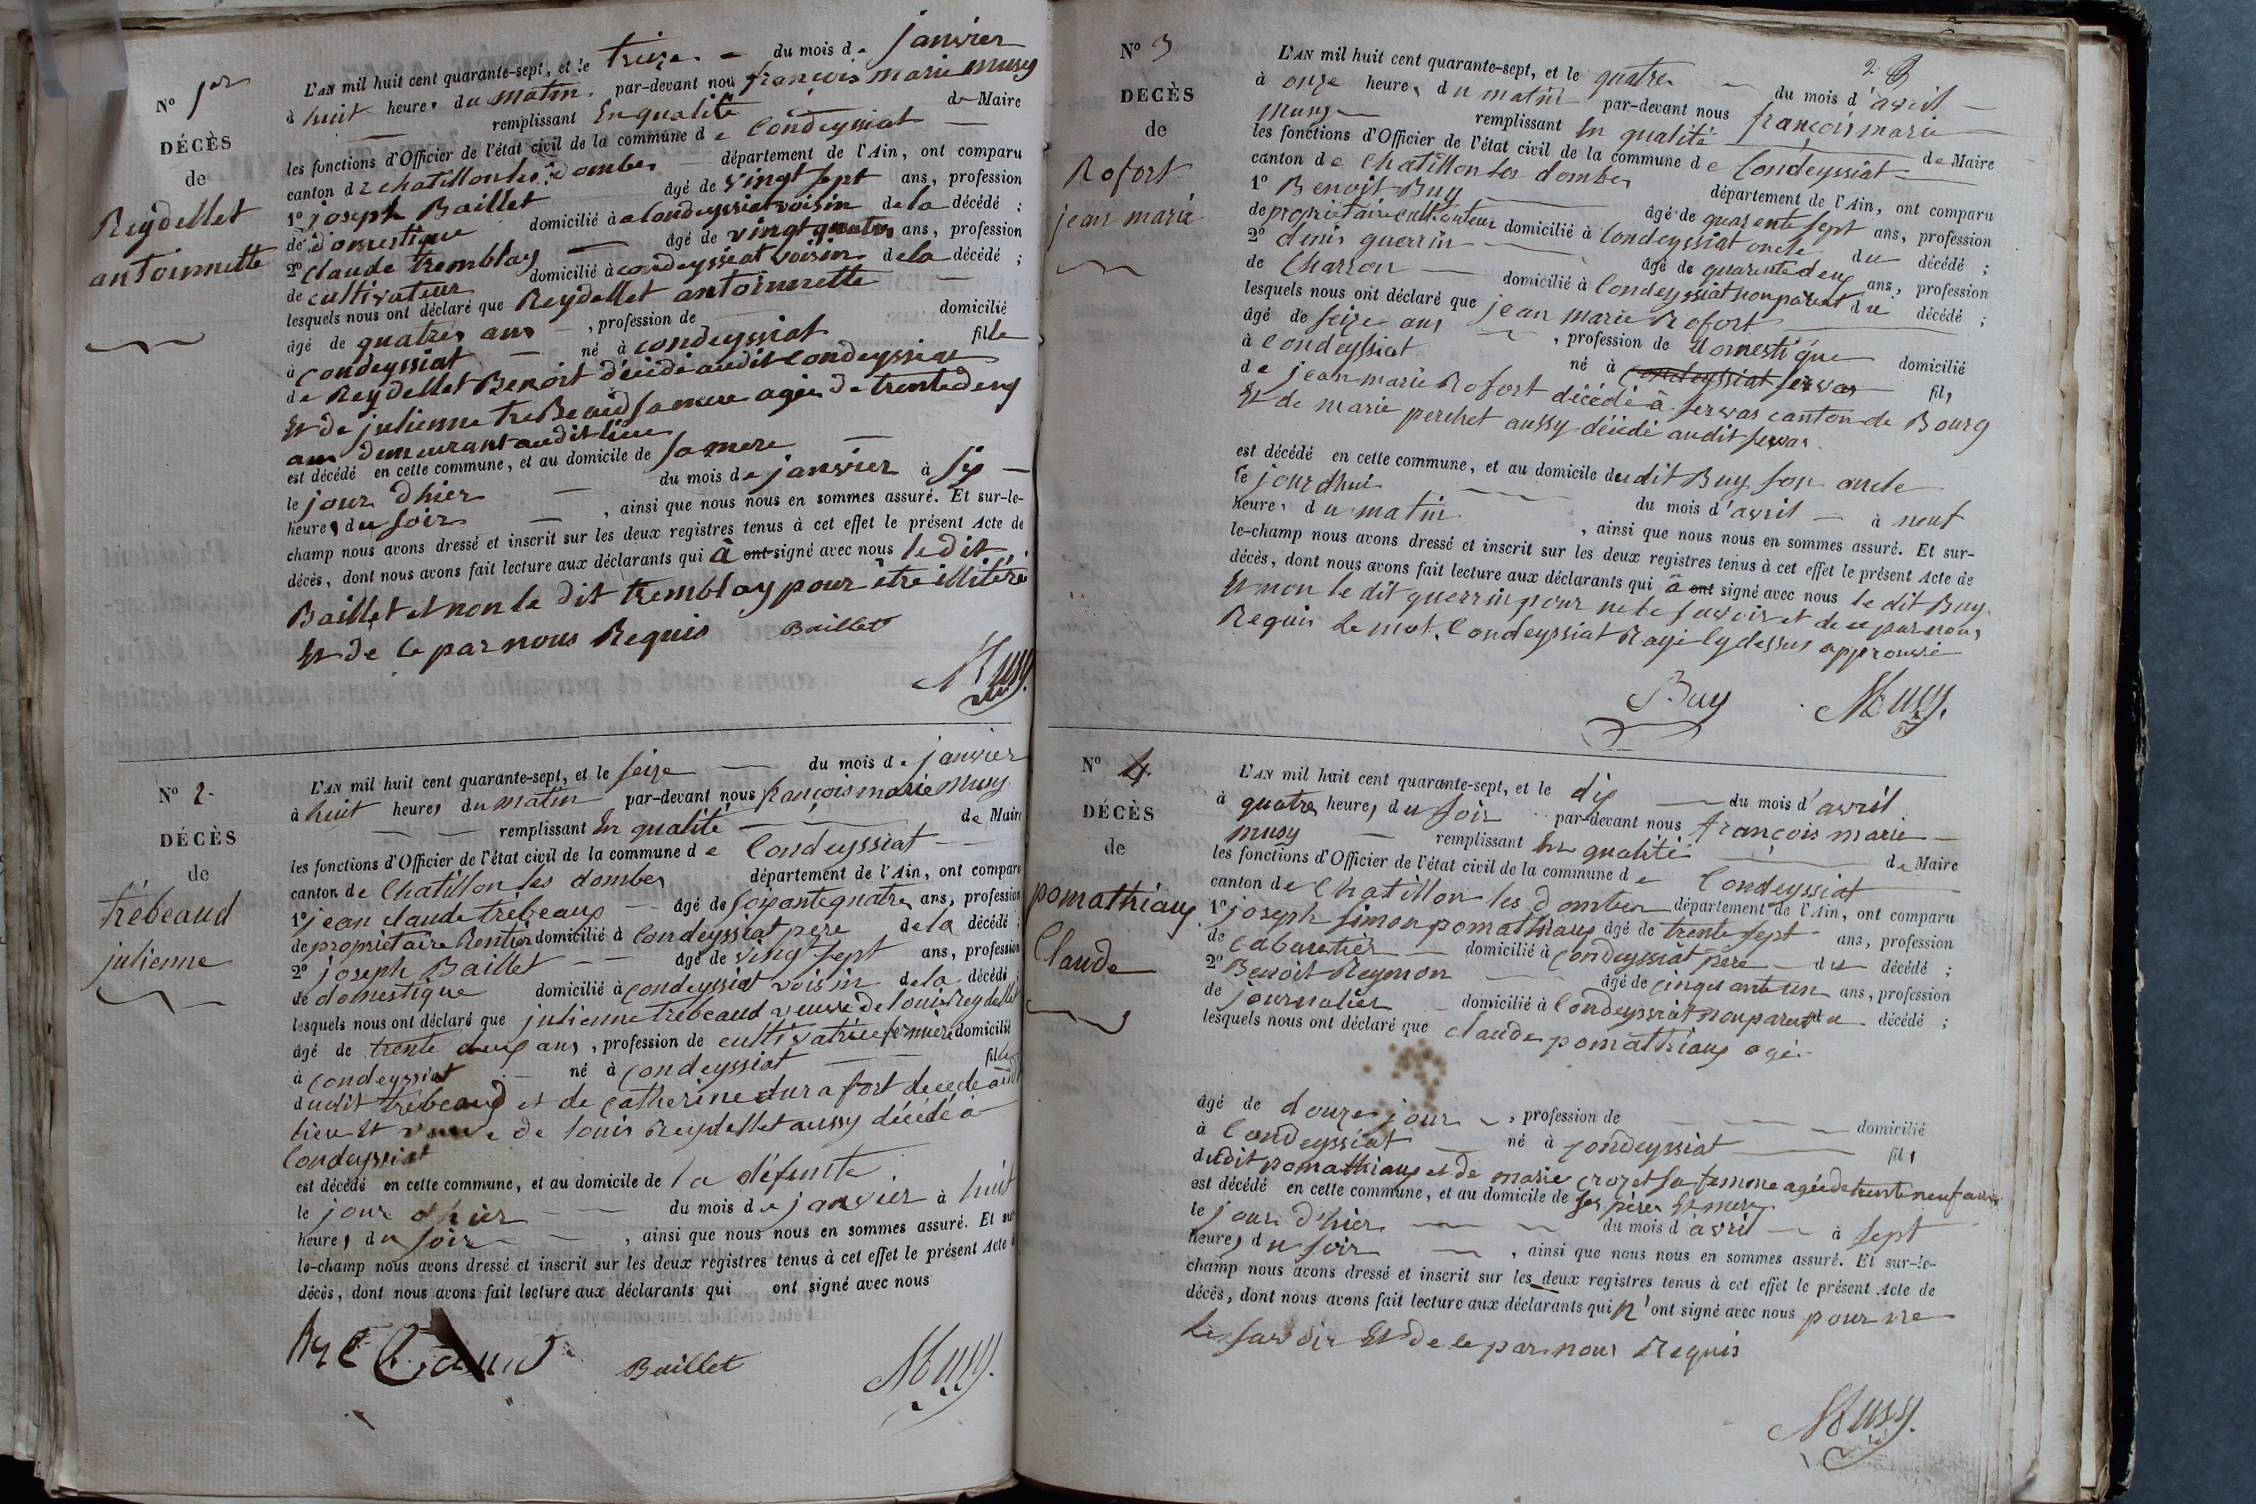 N° 1er
DÉCÈS
de
Reydellet
antoinnette
L'AN mil huit cent quarante-sept, et le treize du mois de janvier
à huit heures du matin par-devant nou françois marie musy
remplissant En qualité de Maire
les fonctions d'Officier de l'état civil de la commune de Condeyssiat
canton de chatillon les dombes département de l'Ain, ont comparu
1° joseph Baillet âgé de vingt sept ans, profession
de domestique domicilié à Condeyssiat voisin de la décédé ;
2° Claude tremblay âgé de vingt quatre ans, profession
de cultivateur domicilié à condeyssiat voisin de la décédé ;
lesquels nous ont déclaré que Reydellet antoinnette
âgé de quatres ans , profession de domicilié
à Condeyssiat né à condeyssiat fille
de Reydellet Benoit décédé audit Condeyssiat
Et de julienne treBeaud sa mere agée de trente deux
ans demeurant audit lieu
est décédé en cette commune, et au domicile de sa mere
le jour d'hier du mois de janvier à six
heures du soir , ainsi que nous nous en sommes assuré. Et sur-le-
champ nous avons dressé et inscrit sur les deux registres tenus à cet effet le présent Acte de
décès, dont nous avons fait lecture aux déclarants qui à ont signé avec nous le dit
Baillet et non le dit tremblay pour être illitéré
Et de ce par nous Requis Baillet
Musy
N° 2
DÉCÈS
de
trébeaud
julienne
L'AN mil huit cent quarante-sept, et le seize du mois de janvier
à huit heures du matin par-devant nous françois marie musy
remplissant En qualité de Maire
les fonctions d'Officier de l'état civil de la commune de Condeyssiat
canton de Chatillon les dombes département de l'Ain, ont comparu
1° jean claude trébeaux âgé de soixante quatre ans, profession
de propriétaire Rentier domicilié à Condeyssiat pere de la décédé ;
2° joseph Baillet âgé de vingt sept ans, profession
de domestique domicilié à condeyssiat voisin de la décédé ;
lesquels nous ont déclaré que julienne trébeaud veuve de louis Reydellet
âgé de trente deux ans , profession de cultivatrice fermiere domicilié
à condeyssiat né à Condeyssiat fille
dudit trébeaud et de catherine durafort decedé audit
lieu Et veuve de louis Reydellet aussy décédé à
Condeyssiat
est décédé en cette commune, et au domicile de la défunte
le jour d'hier du mois de janvier à huit
heures du soir , ainsi que nous nous en sommes assuré. Et sur
le-champ nous avons dressé et inscrit sur les deux registres tenus à cet effet le présent Acte de
décès, dont nous avons fait lecture aux déclarants qui ont signé avec nous
Baillet Musy
N° 3
DECÈS
de
Rofort
jean marie
2
L'AN mil huit cent quarante-sept, et le quatre du mois d'avril
à onze heures du matin par-devant nous françois marie
musy remplissant En qualité de Maire
les fonctions d'Officier de l'état civil de la commune de Condeyssiat
canton de Chatillon les dombes département de l'Ain, ont comparu
1° Benoit Buy âgé de quarente sept ans, profession
de propriétaire cultivateur domicilié à Condeyssiat oncle du décédé ;
2° denis guerrin âgé de quarente deux ans, profession
de Charron domicilié à Condeyssiat non parent du décédé ;
lesquels nous ont déclaré que jean marie Rofort
âgé de seize ans , profession de domestique domicilié
à Condeyssiat né à Condeyssiat servas fils
de jean marie Rofort décédé à servas canton de Bourg
Et de marie perchet aussy décédé audit servas
est décédé en cette commune, et au domicile dudit Buy son oncle
le jourdhui du mois d'avril à neuf
heures du matin , ainsi que nous nous en sommes assuré. Et sur-
le-champ nous avons dressé et inscrit sur les deux registres tenus à cet effet le présent Acte de
décès, dont nous avons fait lecture aux déclarants qui à ont signé avec nous le dit Buy
Et non le dit guerrin pour ne le savoir et de ce par nous
Requis le mot Condeyssiat Rayé cy dessus approuvé
Buy Musy
N° 4
DÉCÈS
de
pomathiaux
Claude
L'AN mil huit cent quarante-sept, et le dix du mois d'avril
à quatre heures du soir par-devant nous françois marie
musy remplissant En qualité de Maire
les fonctions d'Officier de l'état civil de la commune de Condeyssiat
canton de Chatillon les dombes département de l'Ain, ont comparu
1° joseph simon pomathiaux âgé de trente sept ans, profession
de cabaretier domicilié à Condeyssiat père du décédé ;
2° Benoit Reymon âgé de cinquante un ans, profession
de journalier domicilié à Condeyssiat non parent du décédé ;
lesquels nous ont déclaré que claude pomathiaux agé
âgé de douze jour , profession de domicilié
à Condeyssiat né à Condeyssiat fils
dudit pomathiaux et de marie crozet sa femme agée de trente neuf ans
est décédé en cette commune, et au domicile de ses père Et mere
le jour d'hier du mois d'avril à sept
heures du soir , ainsi que nous nous en sommes assuré. Et sur-le-
champ nous avons dressé et inscrit sur les deux registres tenus à cet effet le présent Acte de
décès, dont nous avons fait lecture aux déclarants qui n'ont signé avec nous pour ne
le savoir Et de ce par nous Requis
Musy